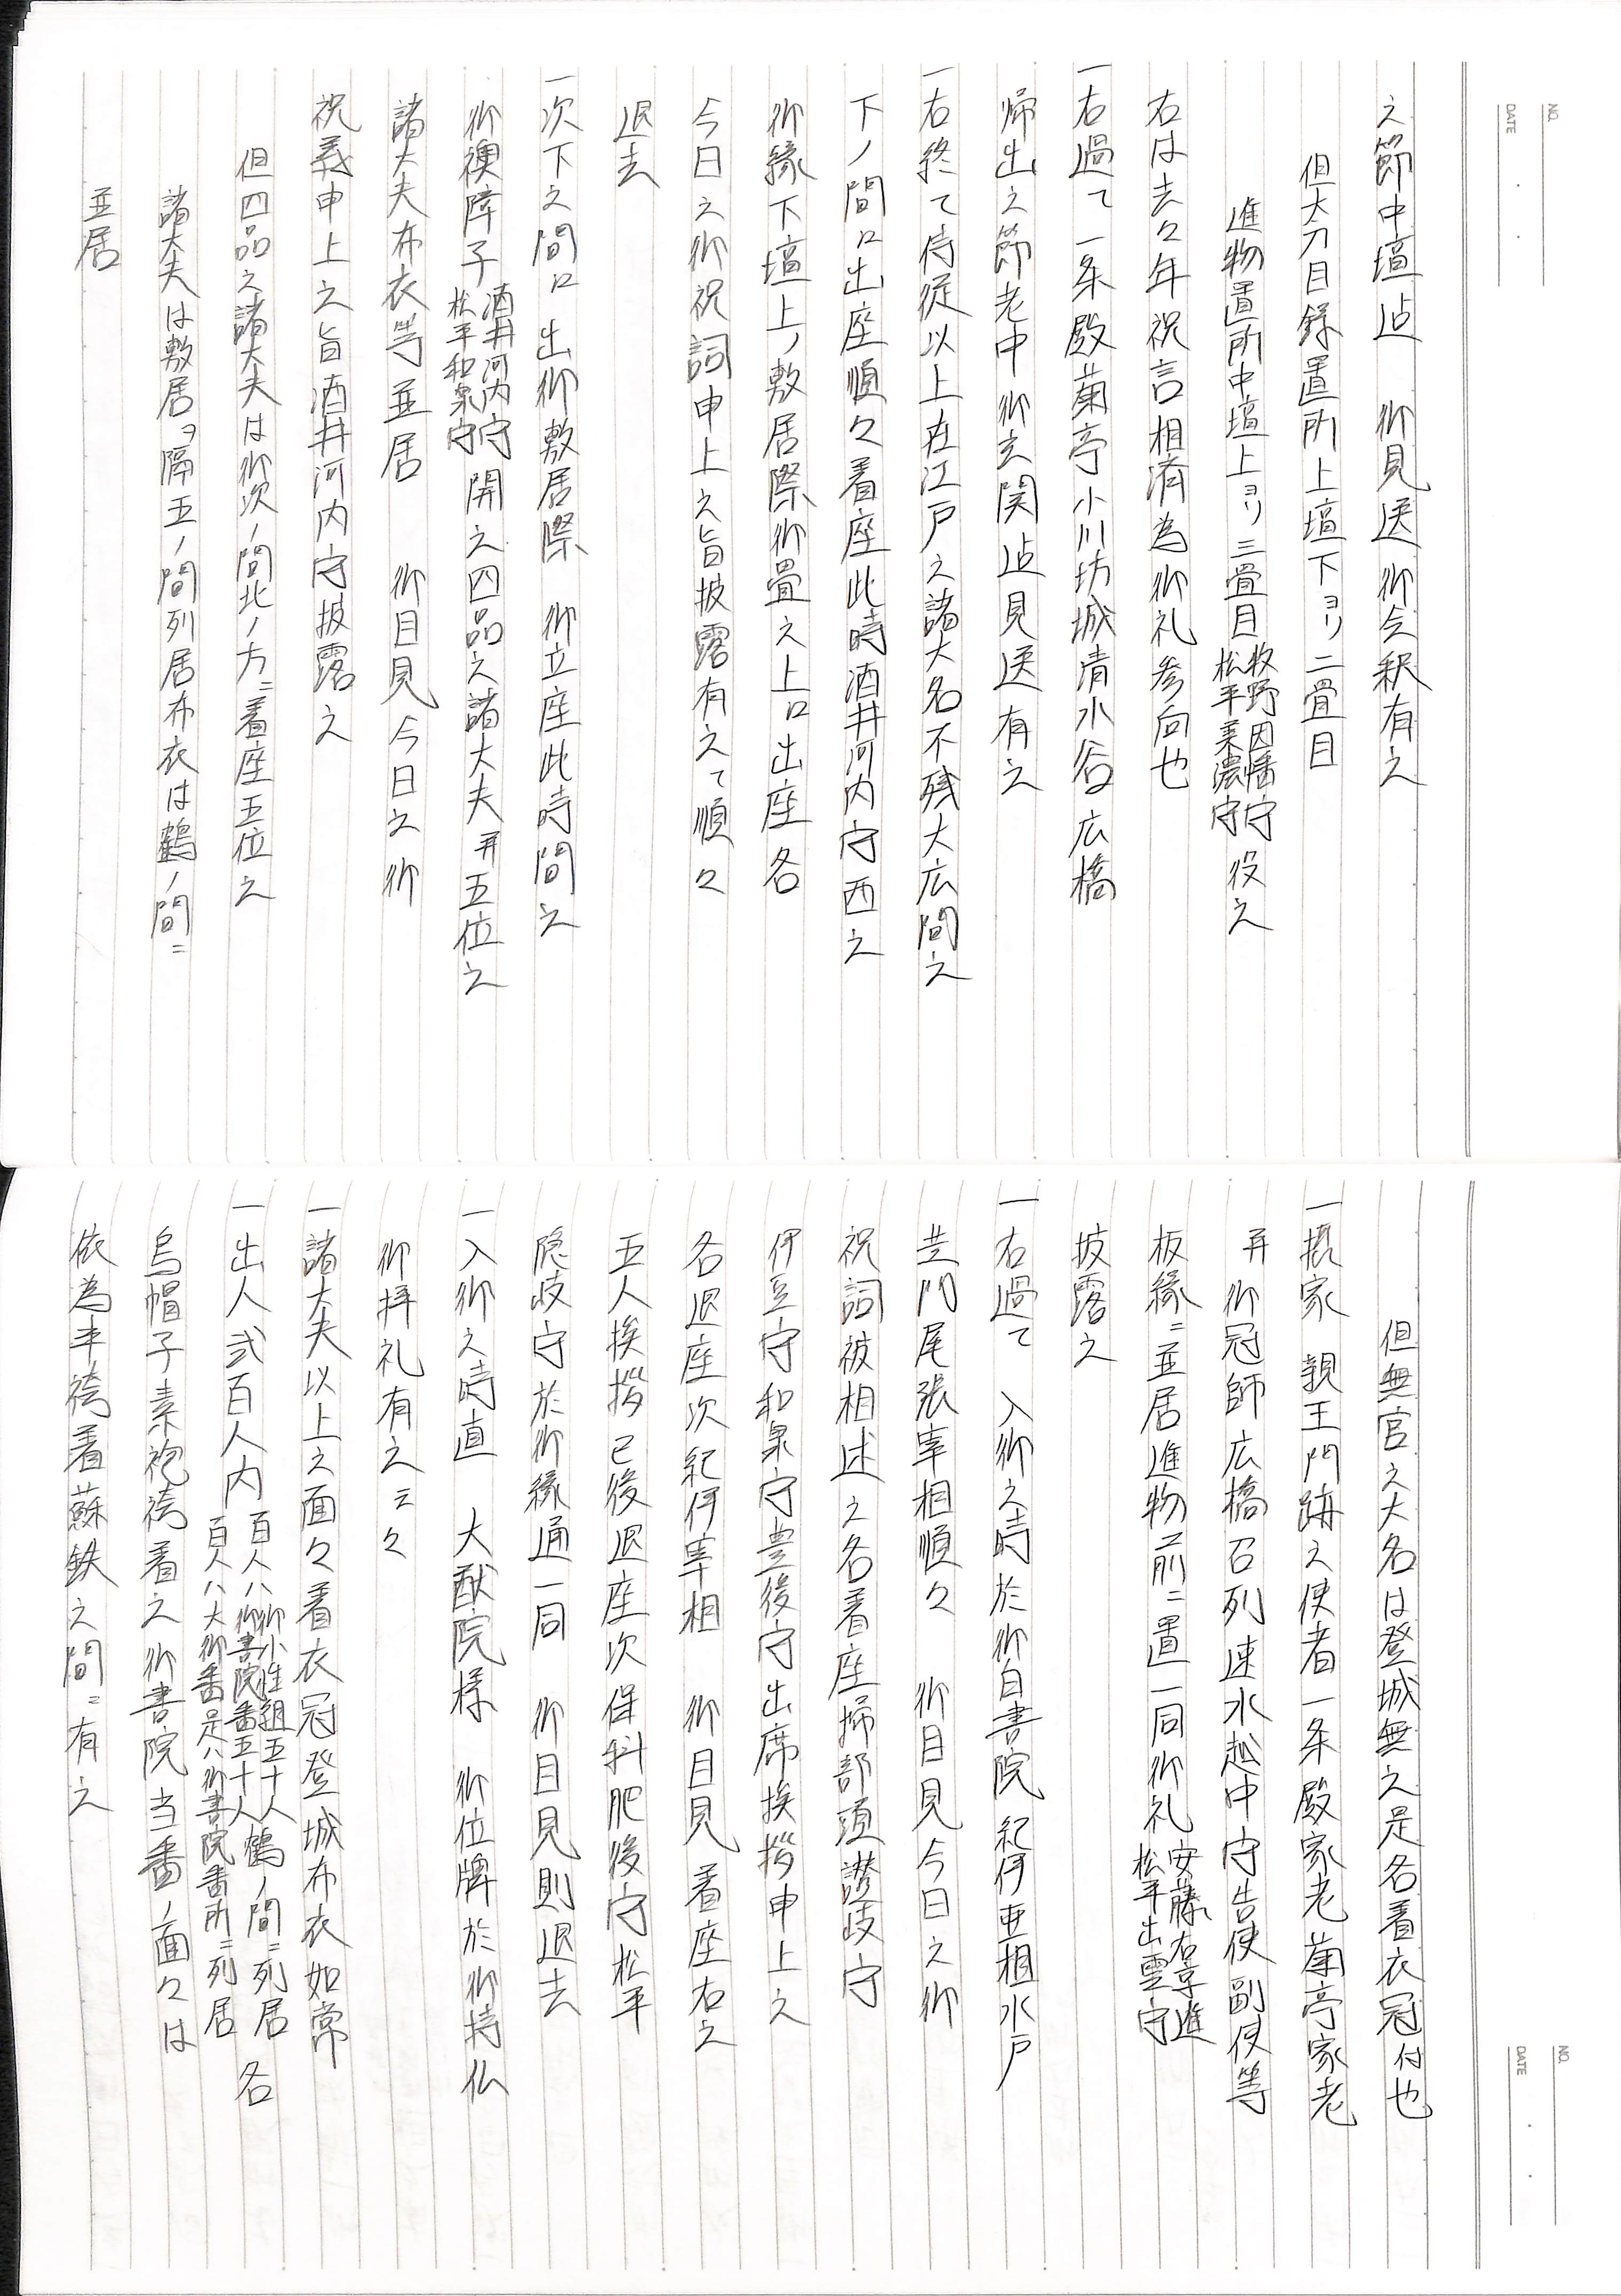 NO.
DATE
之節中壇迠　御見送御会釈有之
但太刀目録置所上壇下ヨリ二畳目
進物置所中壇上ヨリ三畳目 牧野因幡守 松平美濃守 役之
右は去々年祝言相済為御礼参向也
一右過て一条殿菊亭小川坊城清水谷広橋
帰出之節老中御玄関迠見送有之
一右終て侍従以上在江戸之諸大名不残大広間之
下ノ間ニ出座順々着座此時酒井河内守西之
御縁下壇上ノ敷居際御畳之上ニ出座各
今日之御祝詞申上之旨披露有之て順々
退去
一次下之間ニ出御敷居際　御立座此時間之
御襖障子 酒井河内守 松平和泉守 開之四品之諸大夫并五位之
諸大夫布衣等並居　御目見今日之御
祝義申上之旨酒井河内守披露之
但四品之諸大夫は御次ノ間北ノ方ニ着座五位之
諸大夫は敷居ヲ隔五ノ間列居布衣は鶴ノ間ニ
並居
NO.
DATE
但無官之大名は登城無之是名着衣冠付也
一摂家　親王門跡之使者一条殿家老菊亭家老
并御冠師広橋召列速水越中守告使副使等
板縁ニ並居進物前ニ置一同御礼 安藤右京進 松平出雲守
披露之
一右過て　入御之時於御白書院紀伊亜相水戸
黄門尾張宰相順々　御目見今日之御
祝詞被相述之各着座掃部頭讃岐守
伊豆守和泉守豊後守出席挨拶申上之
各退座次紀伊宰相　御目見着座右之
五人挨拶已後退座次保科肥後守松平
隠岐守於御縁通一同　御目見則退去
一入御之時直　大猷院様　御位牌於御持仏
御拝礼有之云々
一諸大夫以上之面々着衣冠登城布衣如常
一出人弐百人内 百人ハ御小性組五十人御書院番五十人鶴ノ間ニ列居 百人ハ大御番是ハ御書院番所ニ列居 各
烏帽子素袍袴着之御書院当番ノ面々は
依為半袴着蘇鉄之間ニ有之